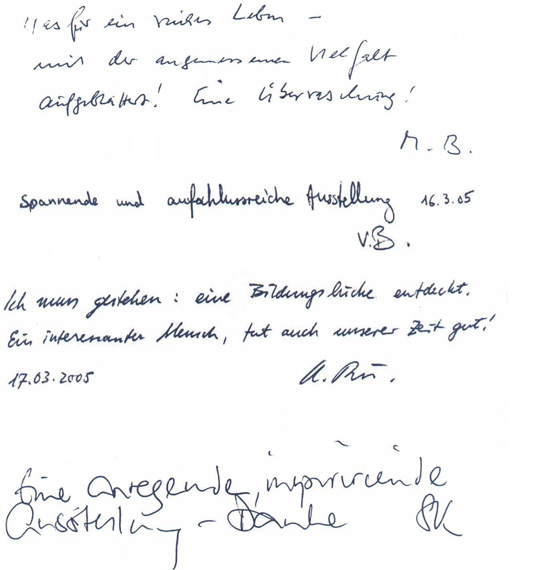 Was für ein reiches Leben –
mit der angemessenen Vielfalt
aufgeblättert! Eine Überraschung!
M. B.
Spannende und aufschlussreiche Ausstellung 16.3.05
V.B.
Ich muss gestehen: eine Bildungslücke entdeckt.
Ein interessanter Mensch, tut auch unserer Zeit gut!
17.03.2005
Eine anregende, inspirierende
Ausstellung – Danke SK